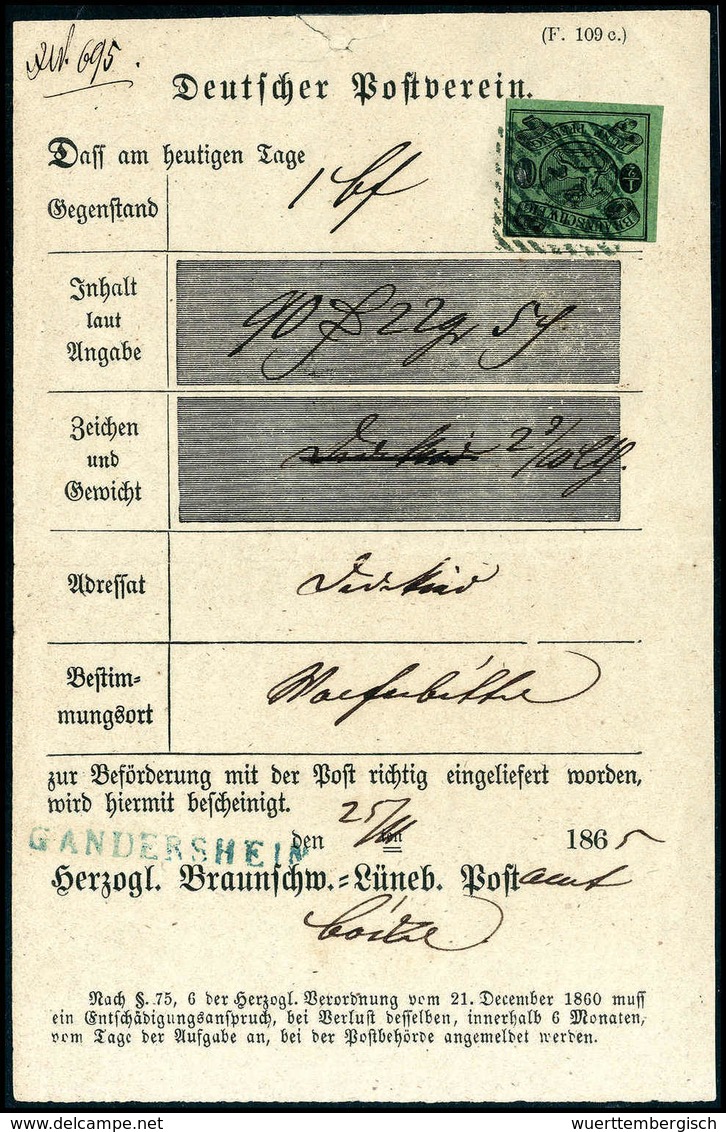 (F. 109 c.)
№ 695.
Deutscher Postverein.
Dass am heutigen Tage
Gegenstand
1 bf
FÜNF PFENNIG
1/2
BRAUNSCHWEIG
Inhalt
laut
Angabe
90 22 gr 5
Zeichen
und
Gewicht
2
Adressat
Bestim-
mungsort
Wolfenbüttel
zur Beförderung mit der Post richtig eingeliefert worden,
wird hiermit bescheinigt.
GANDERSHEIM
den 25/ten 1865
Herzogl. Braunschw.=Lüneb. Postamt
Nach §. 75, 6 der Herzogl. Verordnung vom 21. December 1860 muss
ein Entschädigungsanspruch, bei Verlust desselben, innerhalb 6 Monaten,
vom Tage der Aufgabe an, bei der Postbehörde angemeldet werden.
wuerttembergisch